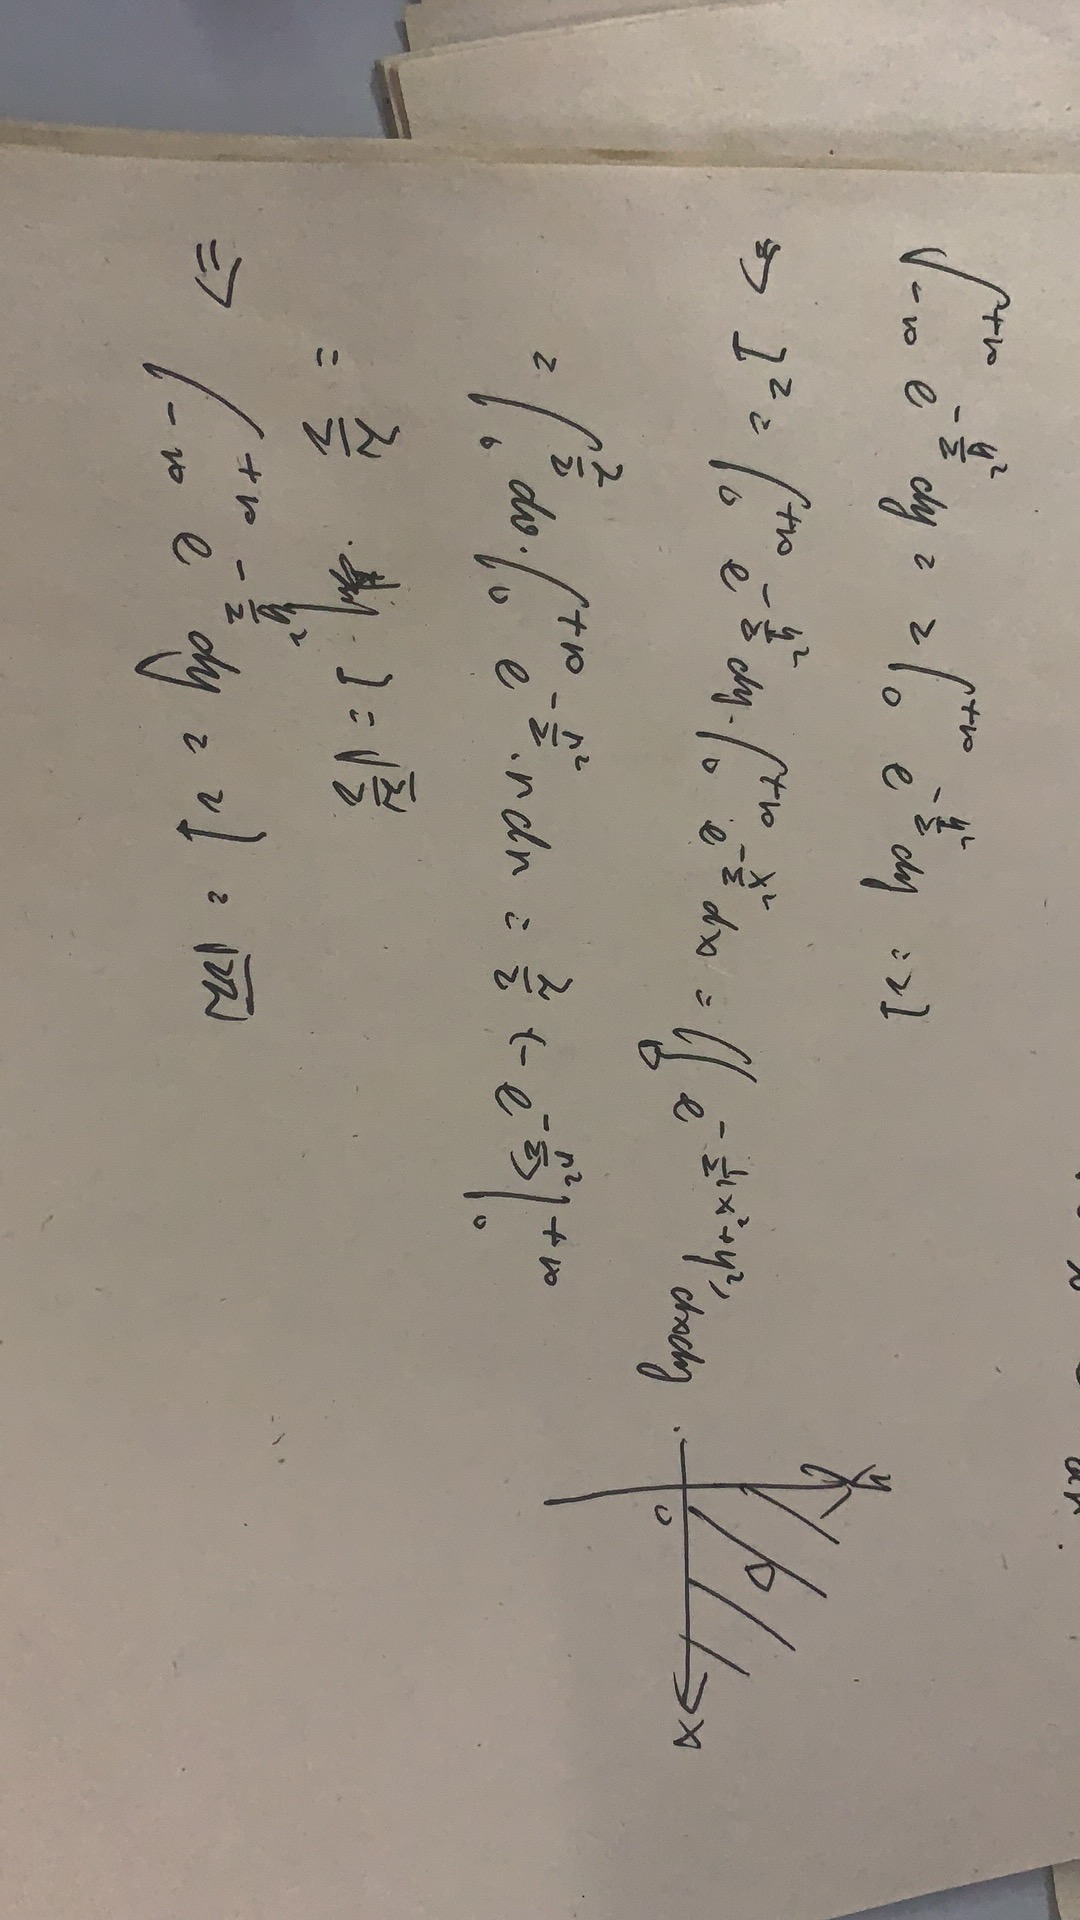 ∫_{-∞}^{+∞} e^{-y²/2} dy = 2∫_0^{+∞} e^{-y²/2} dy = 2I
⇒ I² = ∫_0^{+∞} e^{-y²/2} dy · ∫_0^{+∞} e^{-x²/2} dx = ∬_D e^{-1/2(x²+y²)} dxdy .
y
D
0
x
= ∫_0^{π/2} dθ · ∫_0^{+∞} e^{-r²/2} · r dr = π/2 (-e^{-r²/2}) |_0^{+∞}
= π/2 . I = √(π/2)
⇒ ∫_{-∞}^{+∞} e^{-y²/2} dy = 2I = √(2π)